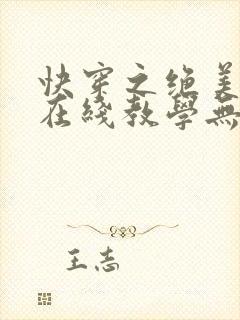 快穿之绝美
在线教学無
王志